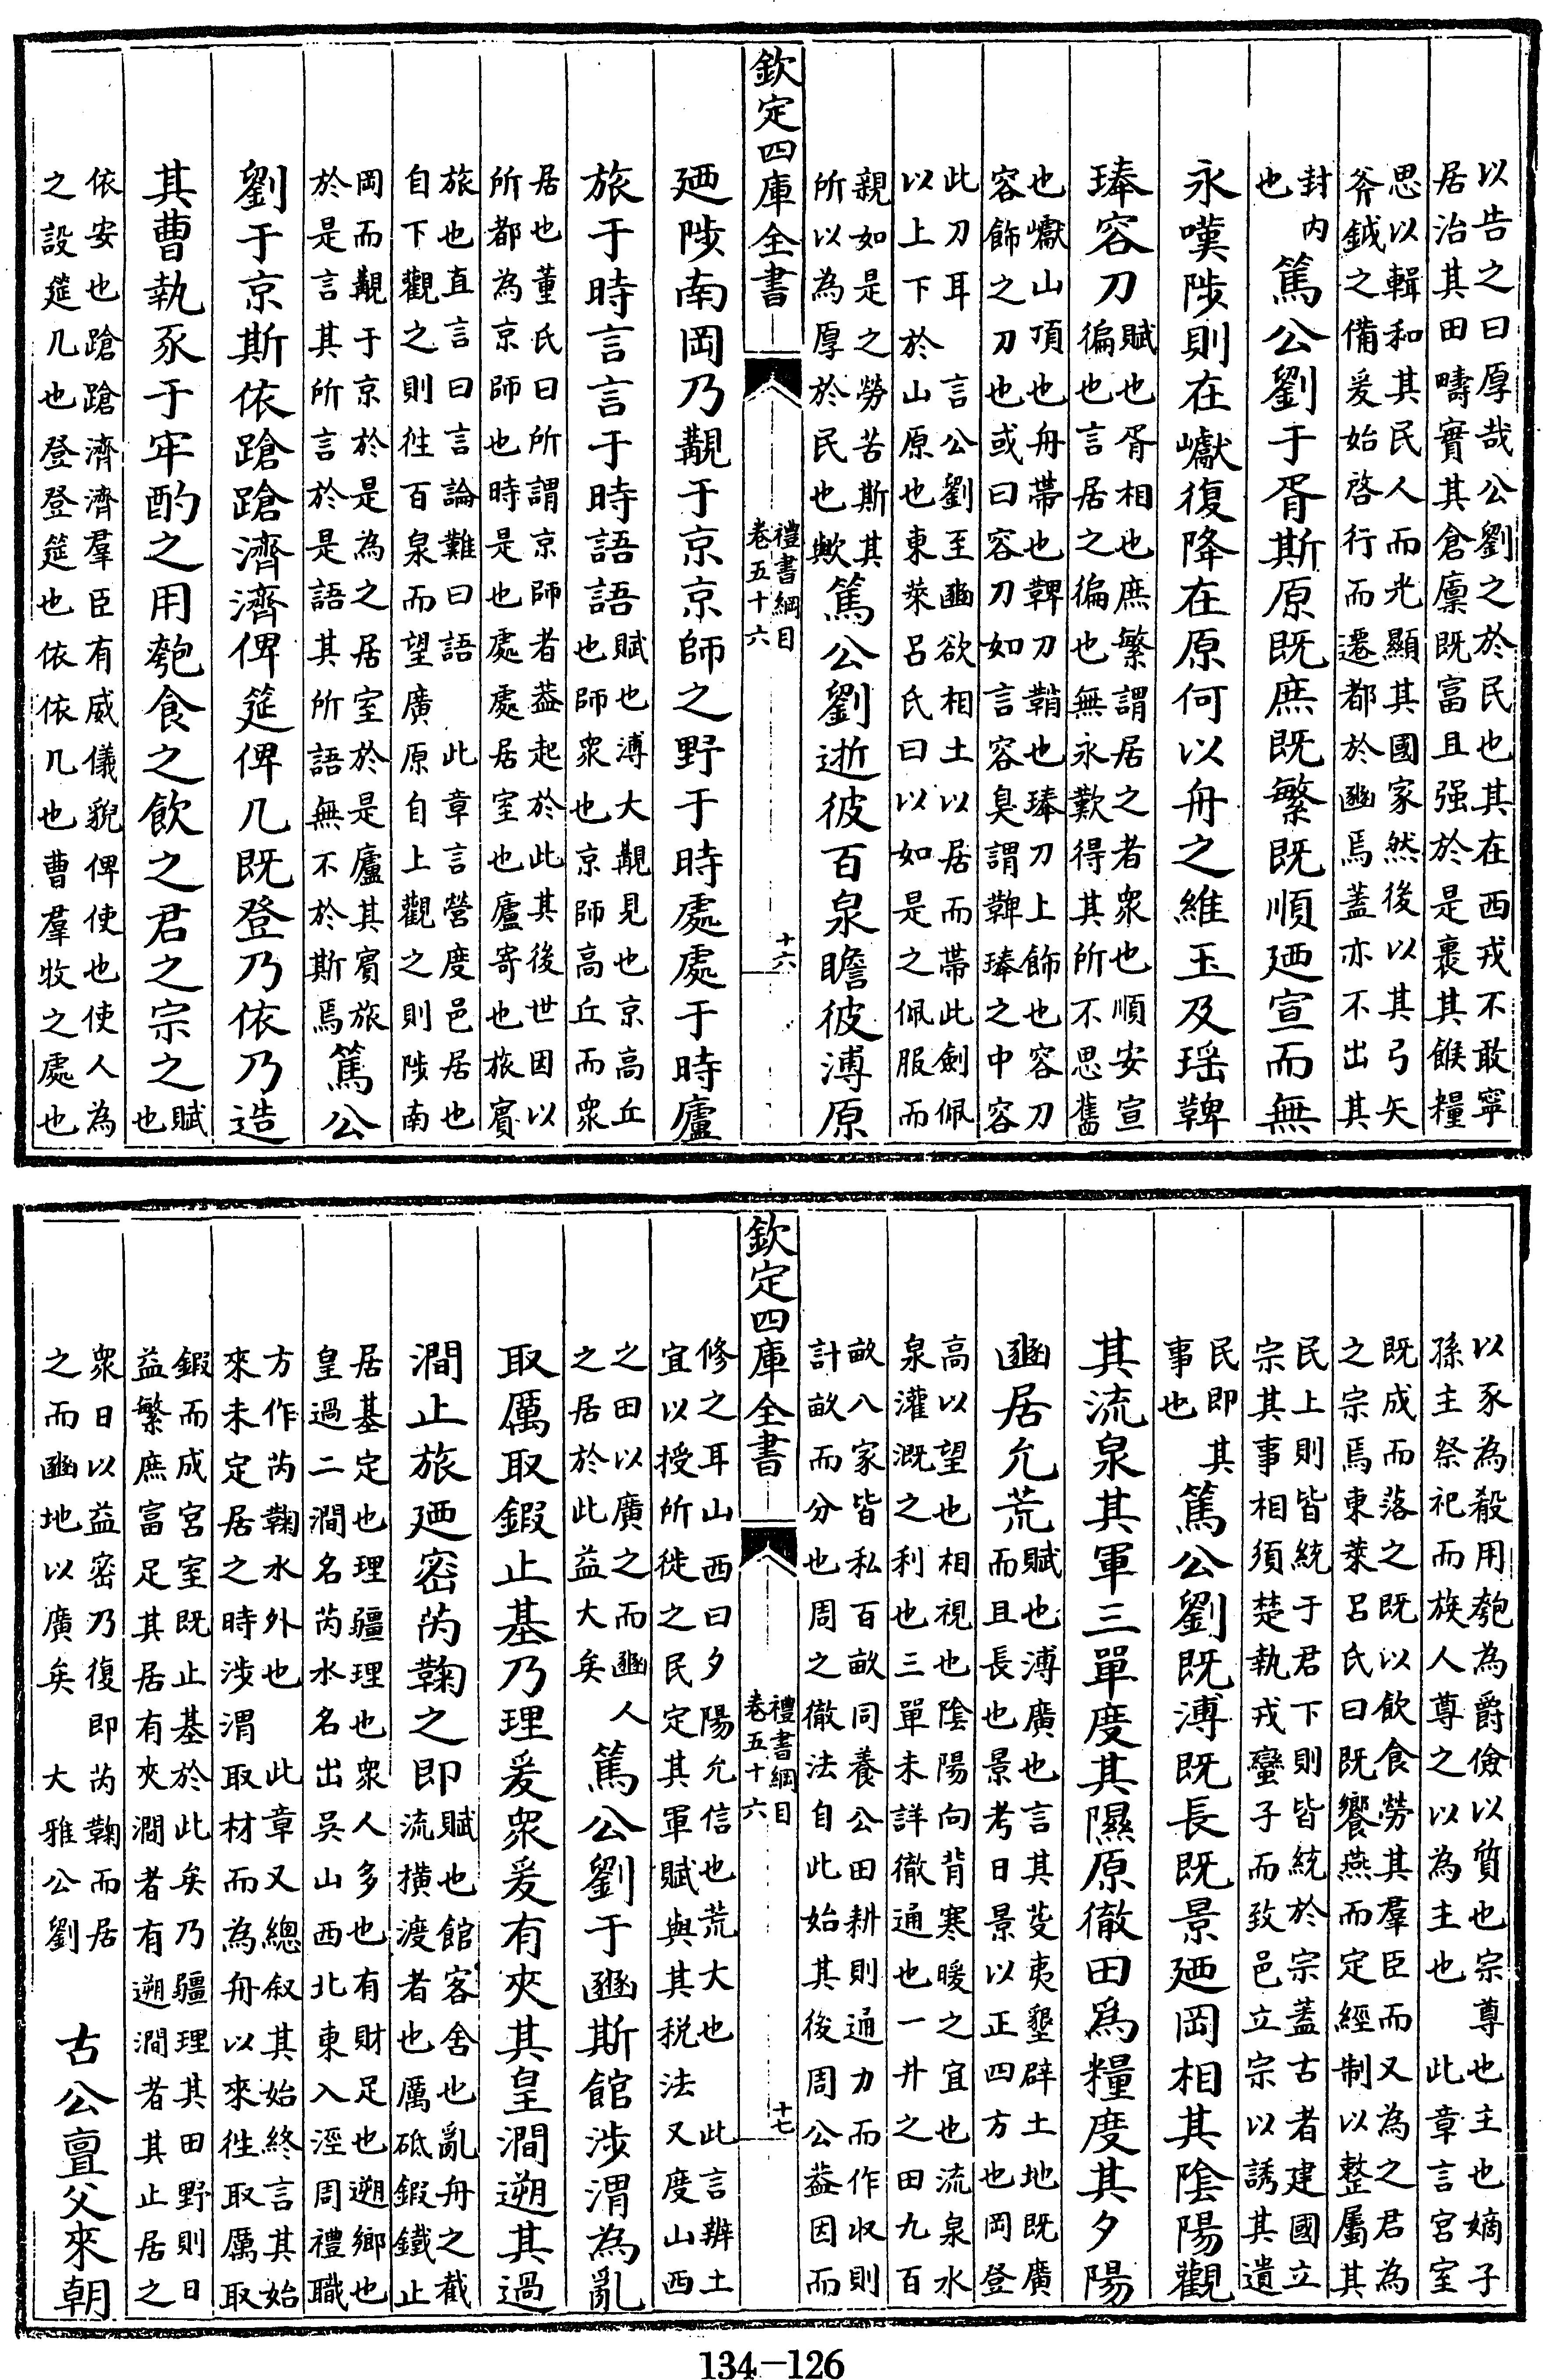 以告之曰厚哉公劉之於民也其在西戎不敢寧
居治其田疇實其倉廩既富且强於是裹其餱糧
思以輯和其民人而光顯其國家然後以其弓矢
斧鉞之備爰始啓行而遷都於豳焉蓋亦不出其
封内
也
篤公劉于胥斯原既庶既繁既順廼宣而無
永嘆陟則在巘復降在原何以舟之維玉及瑶鞞
琫容刀
賦也胥相也庶繁謂居之者衆也順安宣
徧也言居之徧也無永歎得其所不思舊
也巘山頂也舟帶也鞞刀鞘也琫刀上飾也容刀
容飾之刀也或曰容刀如言容臭謂鞞琫之中容
此刀耳 言公劉至豳欲相土以居而帶此劍佩
以上下於山原也東萊呂氏曰以如是之佩服而
親如是之勞苦斯其
所以為厚於民也歟
篤公劉逝彼百泉瞻彼溥原
欽定四庫全書
禮書綱目
卷五十六
十六
廼陟南岡乃覯于京京師之野于時處處于時廬
旅于時言言于時語語
賦也溥大覯見也京高丘
也師衆也京師高丘而衆
居也董氏曰所謂京師者蓋起於此其後世因以
所都為京師也時是也處處居室也廬寄也旅賓
旅也直言曰言論難曰語 此章言營度邑居也
自下觀之則徃百泉而望廣原自上觀之則陟南
岡而覯于京於是為之居室於是廬其賓旅
於是言其所言於是語其所語無不於斯焉
篤公
劉于京斯依蹌蹌濟濟俾筵俾几既登乃依乃造
其曹執豕于牢酌之用匏食之飲之君之宗之
賦
也
依安也蹌蹌濟濟羣臣有威儀貌俾使也使人為
之設筵几也登登筵也依依几也曹羣牧之處也
以豕為殽用匏為爵儉以質也宗尊也主也嫡子
孫主祭祀而族人尊之以為主也 此章言宮室
既成而落之既以飲食勞其羣臣而又為之君為
之宗焉東萊呂氏曰既饗燕而定經制以整屬其
民上則皆統于君下則皆統於宗蓋古者建國立
宗其事相須楚執戎蠻子而致邑立宗以誘其遺
民即其
事也
篤公劉既溥既長既景廼岡相其陰陽觀
其流泉其軍三單度其隰原徹田為糧度其夕陽
豳居允荒
賦也溥廣也言其芟夷墾辟土地既廣
而且長也景考日景以正四方也岡登
高以望也相視也陰陽向背寒暖之宜也流泉水
泉灌溉之利也三單未詳徹通也一井之田九百
畝八家皆私百畝同養公田耕則通力而作收則
計畝而分也周之徹法自此始其後周公蓋因而
欽定四庫全書
禮書綱目
卷五十六
十七
修之耳山西曰夕陽允信也荒大也 此言辨土
宜以授所徙之民定其軍賦與其税法又度山西
之田以廣之而豳人
之居於此益大矣
篤公劉于豳斯館涉渭為亂
取厲取鍜止基乃理爰衆爰有夾其皇澗遡其過
澗止旅廼密芮鞫之即
賦也館客舍也亂舟之截
流横渡者也厲砥鍜鐵止
居基定也理疆理也衆人多也有財足也遡鄉也
皇過二澗名芮水名出吳山西北東入涇周禮職
方作芮鞫水外也 此章又總叙其始終言其始
來未定居之時涉渭取材而為舟以來徃取厲取
鍜而成宮室既止基於此矣乃疆理其田野則日
益繁庶富足其居有夾澗者有遡澗者其止居之
衆日以益密乃復即芮鞫而居
之而豳地以廣矣 大雅公劉
古公亶父來朝
134-126